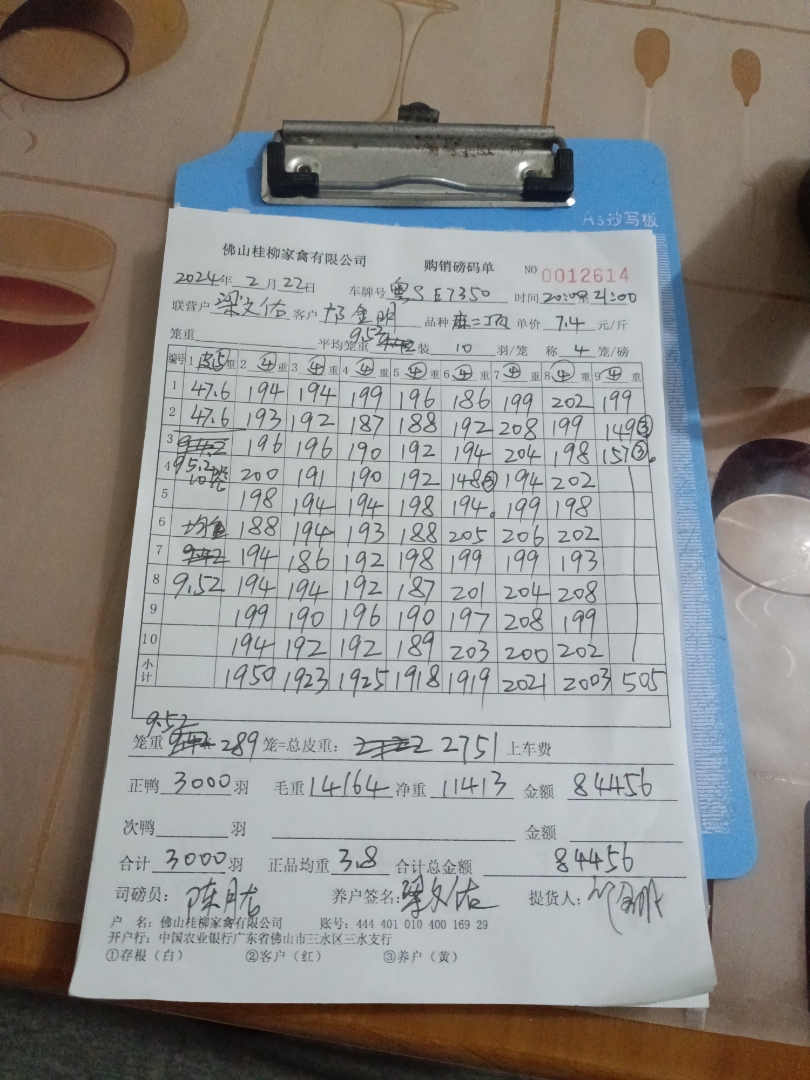 A3抄写板
佛山桂柳家禽有限公司 购销磅码单 NO 0012614
2024年 2月 22日 车牌号 粤S E7350 时间 20:00至21:00
联营户 梁文佑 客户 金明 品种 麻二 单价 7.4 元/斤
笼重 平均笼重 9.52 装 10 羽/笼 称 4 笼/磅
编号 1 皮⑤重 2 ④重 3 ④重 4 ④重 5 ④重 6 ④重 7 ④重 8 ④重 9 ④重
1 47.6 194 194 199 196 186 199 202 199
2 47.6 193 192 187 188 192 208 199 149③
3 196 196 190 192 194 204 198 157③
4 95.2 10笼 200 191 190 192 148③ 194 202
5 198 194 194 198 194 199 198
6 均重 188 194 193 188 205 206 202
7 194 186 192 198 199 199 193
8 9.52 194 194 192 187 201 204 208
9 199 190 196 190 197 208 199
10 194 192 192 189 203 200 202
小计 1950 1923 1925 1918 1919 2021 2003 505
笼重 9.52 289 笼=总皮重: 2751 上车费
正鸭 3000 羽 毛重 14164 净重 11413 金额 84456
次鸭 羽 金额
合计 3000 羽 正品均重 3.8 合计总金额 84456
司磅员: 陈月右 养户签名: 梁文佑 提货人:
户 名: 佛山桂柳家禽有限公司 账号: 444 401 010 400 169 29
开户行: 中国农业银行广东省佛山市三水区三水支行
①存根(白) ②客户(红) ③养户(黄)